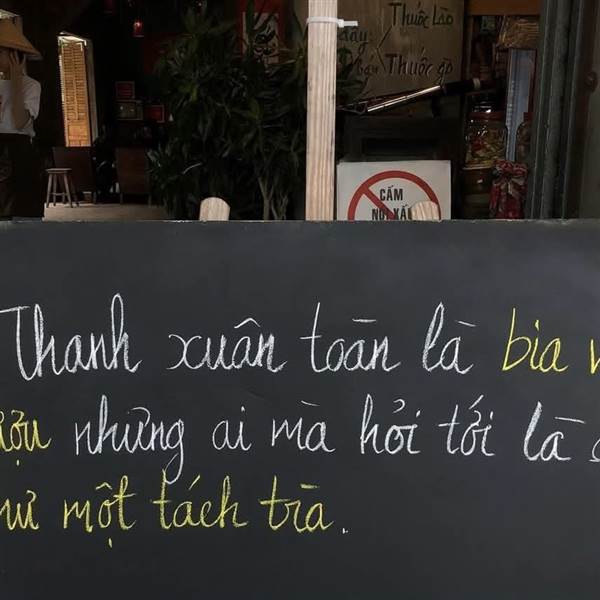 Thuốc Lào
Thuốc gõ
CẤM
NÓI XẤU
Thanh xuân toàn là bia
nhưng ai mà hỏi tới là
một tách trà.